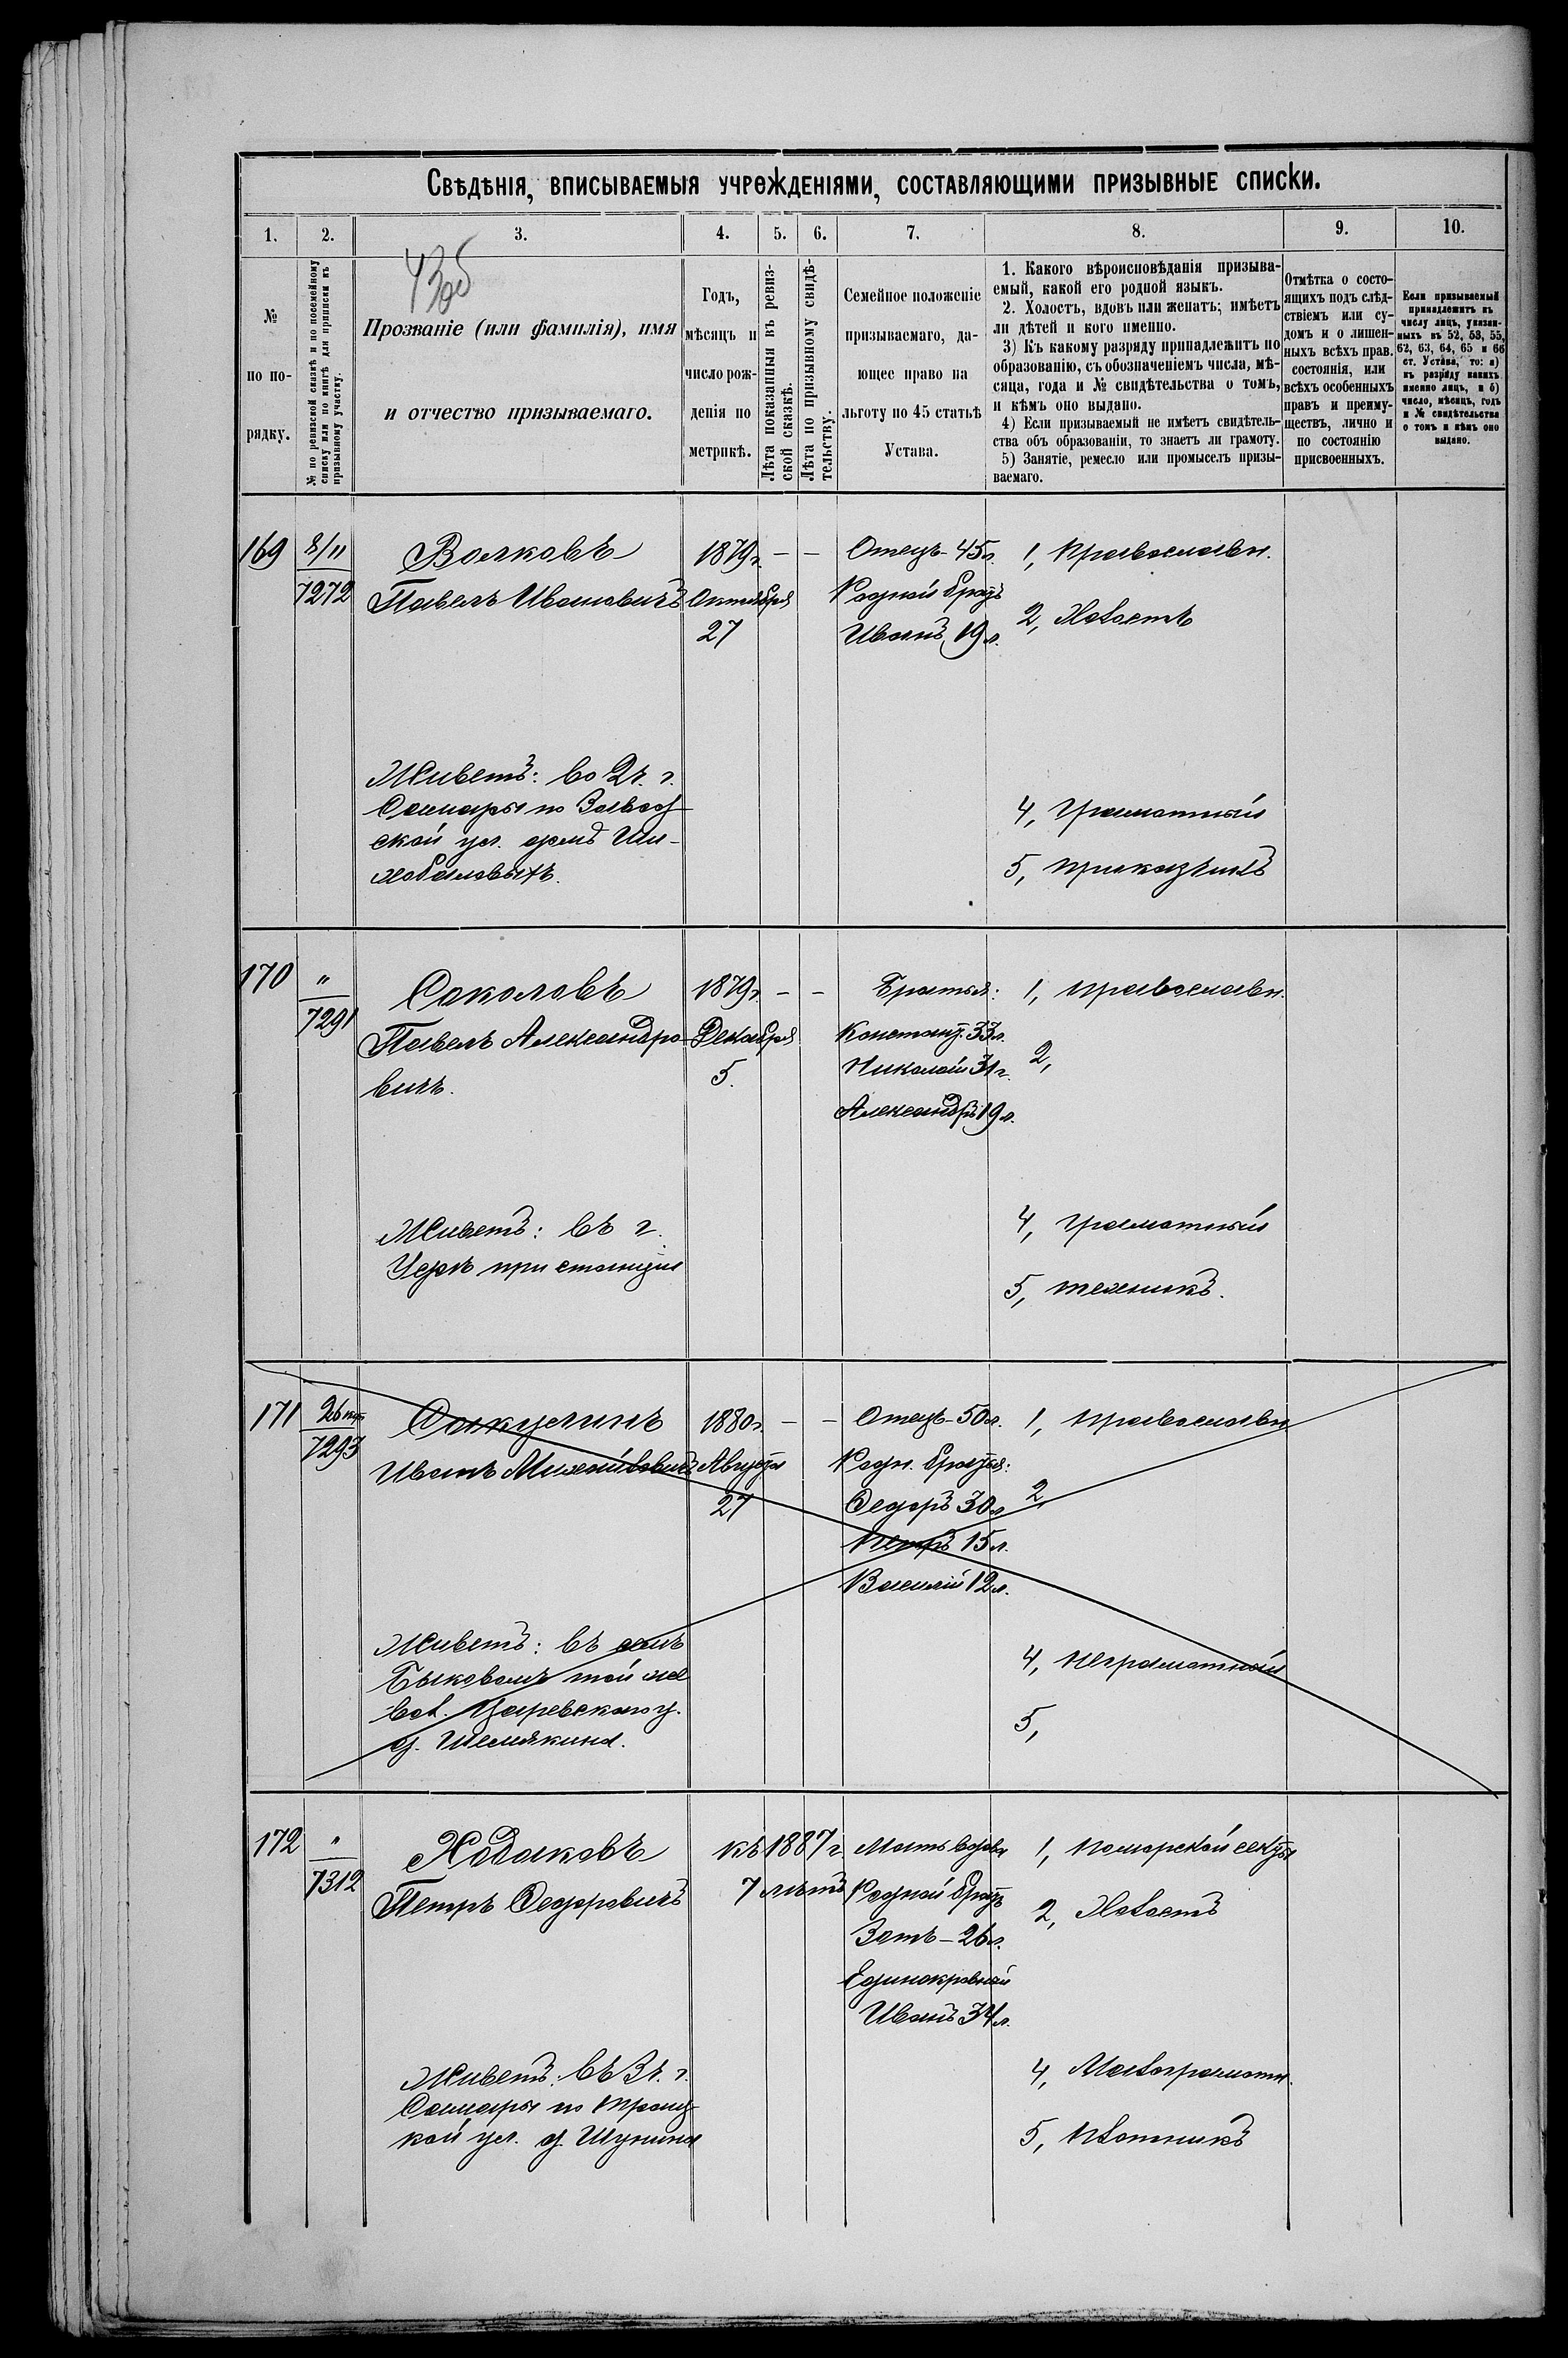 Свѣдѣнія, вписываемыя учрежденіями, составляющими призывные списки.
1. 2. 3. 4. 5. 6. 7. 8. 9. 10.
№
по по-
рядку.
№ по ревизской сказкѣ и по посемейному
списку или по книгѣ для приписки къ
призывному участку.
Прозваніе (или фамилія), имя
и отчество призываемаго.
Годъ,
мѣсяцъ и
число рож-
денія по
метрикѣ.
Лѣта показанныя въ ревиз-
ской сказкѣ.
Лѣта по призывному свидѣ-
тельству.
Семейное положеніе
призываемаго, да-
ющее право на
льготу по 45 статьѣ
Устава.
1. Какого вѣроисповѣданія призыва-
емый, какой его родной языкъ.
2. Холостъ, вдовъ или женатъ; имѣетъ
ли дѣтей и кого именно.
3) Къ какому разряду принадлежитъ по
образованію, съ обозначеніемъ числа, мѣ-
сяца, года и № свидѣтельства о томъ,
и кѣмъ оно выдано.
4) Если призываемый не имѣетъ свидѣтель-
ства объ образованіи, то знаетъ ли грамоту.
5) Занятіе, ремесло или промыселъ призы-
ваемаго.
Отмѣтка о состо-
ящихъ подъ слѣд-
ствіемъ или су-
домъ и о лишен-
ныхъ всѣхъ прав.
состоянія, или
всѣхъ особенныхъ
правъ и преиму-
ществъ, лично и
по состоянію
присвоенныхъ.
Если призываемый
принадлежитъ къ
числу лицъ, указан-
ныхъ въ 52, 53, 55,
62, 63, 64, 65 и 66
ст. Устава, то: а)
къ разряду какихъ
именно лицъ, и б)
число, мѣсяцъ, годъ
и № свидѣтельства
о томъ и кѣмъ оно
выдано.
169
7272
Волковъ
Павелъ Ивановичъ
1879 г.
Октября
27
— —
Отецъ - 45 л.
Родной братъ
Иванъ 19 л.
1, Православн.
2, Холостъ
4, Грамотный
5, Приказчикъ
Живетъ: во 2 ч. г.
Самары по Завод
ской ул. домъ Ши-
хобаловыхъ.
170
"
7291
Соколовъ
Павелъ Александро-
вичъ.
1879 г.
Декабря
5.
— —
Братья:
Констант. 33 л.
Николай 31 г.
Александръ 19 л.
1, Православн.
2,
4, Грамотный
5, техникъ.
Живетъ: въ г.
при станціи
171
7293
Иванъ Михайловичъ
1880 г.
Августа
27
— —
Отецъ - 50 л.
Родн. братья:
Федоръ 30 л.
Петръ 15 л.
Василій 12 л.
1, Православн
2,
4, Неграмотный
5,
Живетъ: въ селѣ
Быковомъ той же
вол. Царевскаго у.
д. Шемякина.
172
"
7312
Ходаковъ
Петръ Федоровичъ
къ 1887 г.
7 лѣтъ
Мать вдова
Родной братъ
26 л.
Единокровный
Иванъ 34 л.
1, Поморской секты
2, Холостъ
4, Малограмотн.
5, Плотникъ
Живетъ: въ 3 ч. г.
Самары по Троиц-
кой ул. д. Шунина